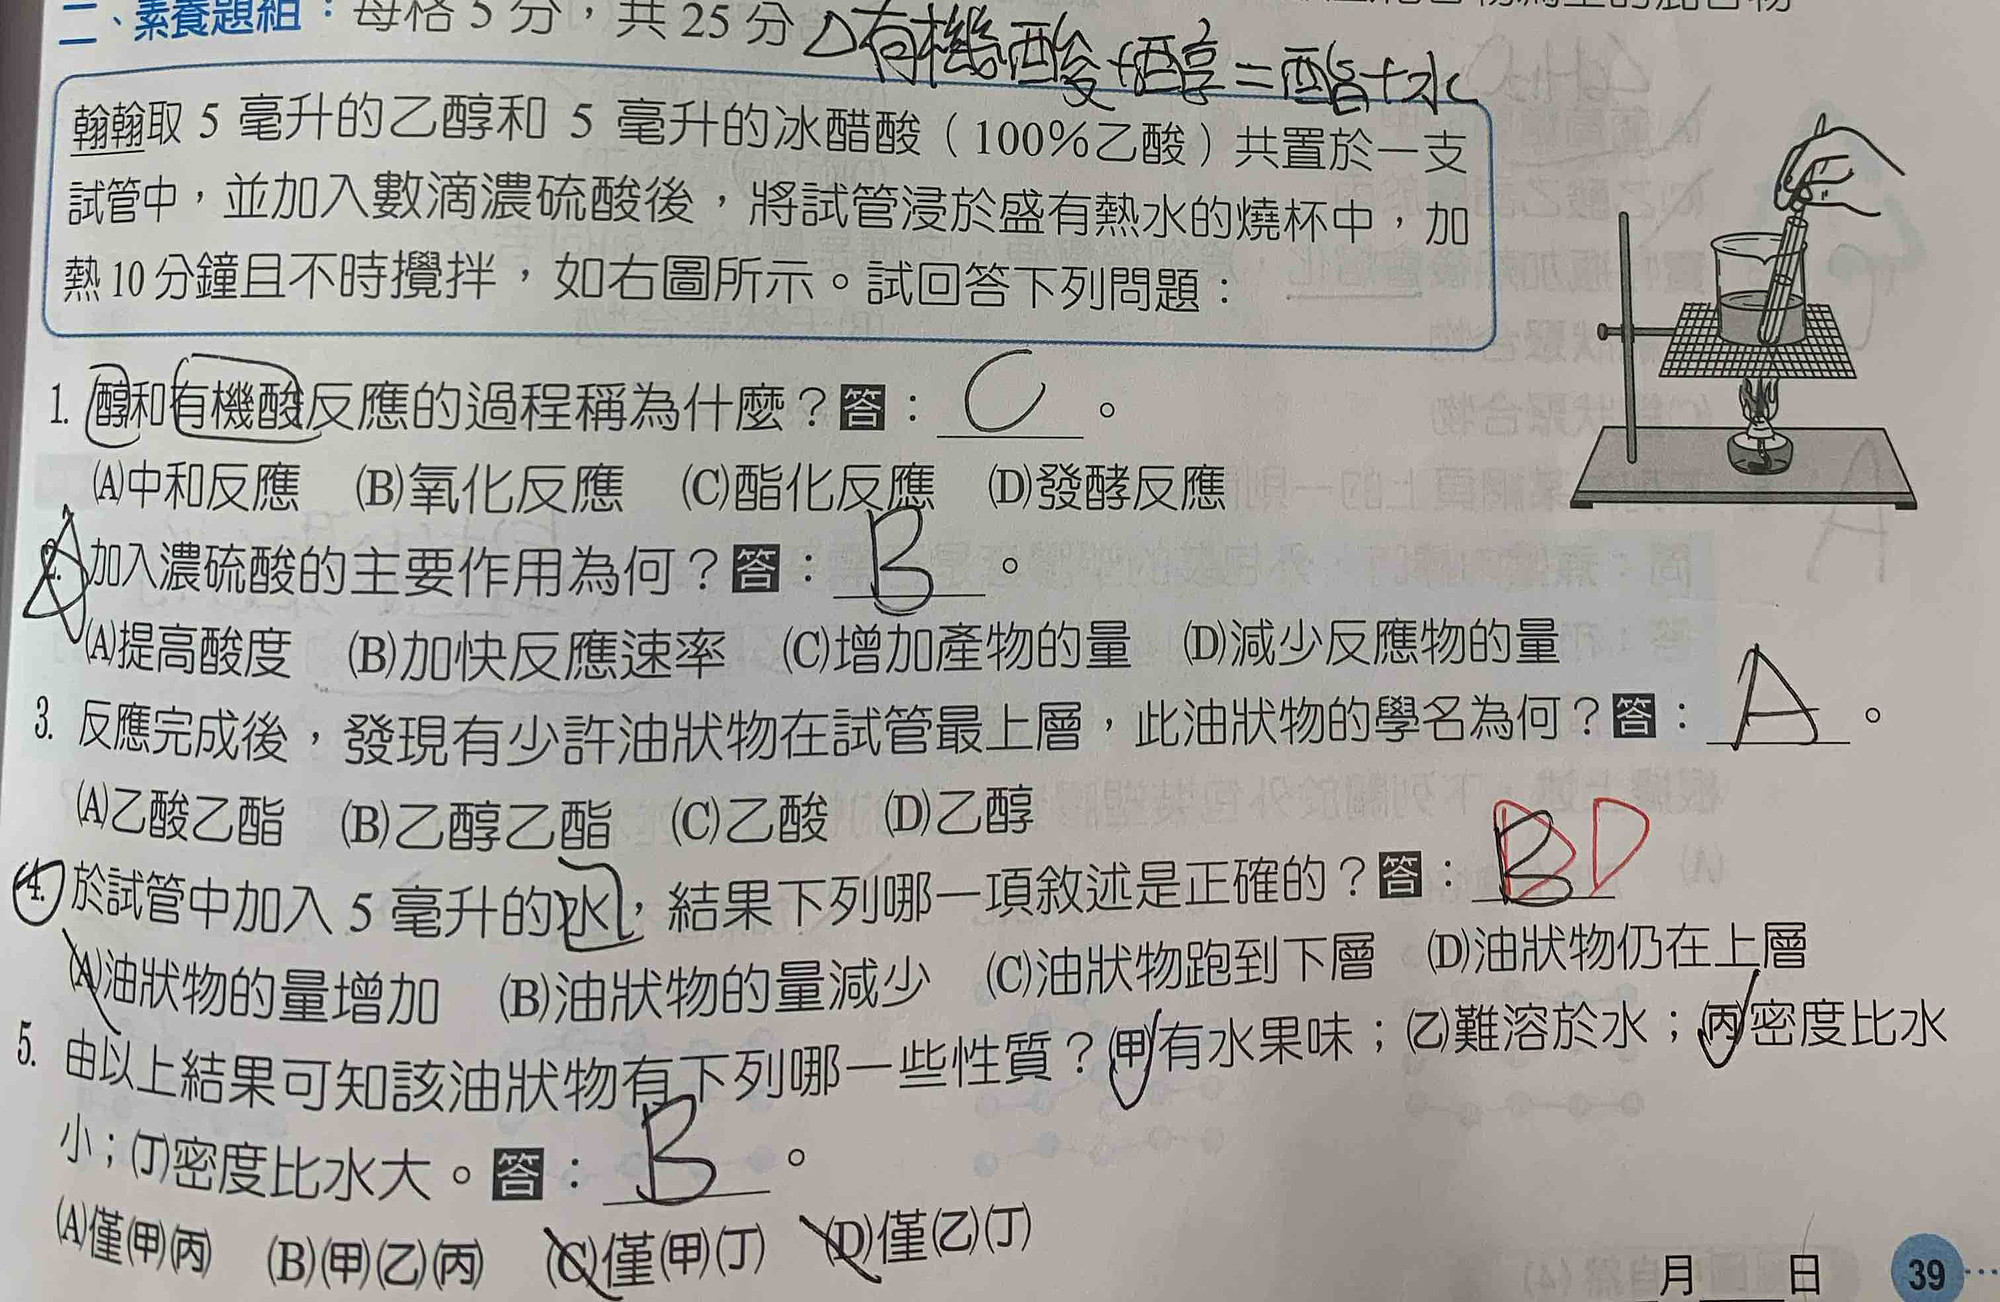 二、素養題組：每格 5 分，共 25 分
△有機酸+醇=酯+水
翰翰取 5 毫升的乙醇和 5 毫升的冰醋酸（100%乙酸）共置於一支
試管中，並加入數滴濃硫酸後，將試管浸於盛有熱水的燒杯中，加
熱 10 分鐘且不時攪拌，如右圖所示。試回答下列問題：
1. 醇和有機酸反應的過程稱為什麼？答：C。
(A)中和反應 (B)氧化反應 (C)酯化反應 (D)發酵反應
2. 加入濃硫酸的主要作用為何？答：B。
(A)提高酸度 (B)加快反應速率 (C)增加產物的量 (D)減少反應物的量
3. 反應完成後，發現有少許油狀物在試管最上層，此油狀物的學名為何？答：A。
(A)乙酸乙酯 (B)乙醇乙酯 (C)乙酸 (D)乙醇
4. 於試管中加入 5 毫升的水，結果下列哪一項敘述是正確的？答：B D
(A)油狀物的量增加 (B)油狀物的量減少 (C)油狀物跑到下層 (D)油狀物仍在上層
5. 由以上結果可知該油狀物有下列哪一些性質？(甲)有水果味；(乙)難溶於水；(丙)密度比水
小；(丁)密度比水大。答：B。
(A)僅(甲)(丙) (B)(甲)(乙)(丙) (C)僅(甲)(丁) (D)僅(乙)(丁)
月 日 39